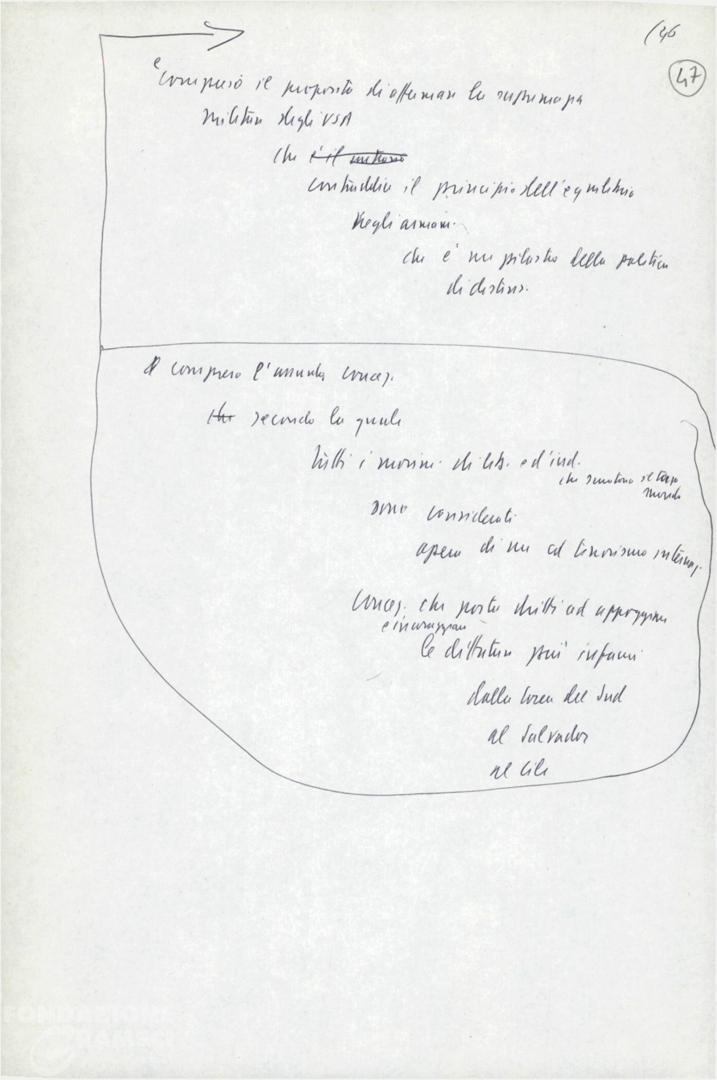 46
47
è compreso il proposito di affermare la supremazia
militare degli USA
che è il contrario
contraddice il principio dell'equilibrio
negli armam.
che è un pilastro della politica
di distens.
è compreso l'assunta concez.
che secondo la quale
tutti i movim. di lib. e d'ind.
che scuotono il terzo
mondo
sono considerati
opera di un cd terrorismo internaz.
Concez. che porta dritti ad appoggiare
e incoraggiare
le dittature più infami
dalla Corea del Sud
al Salvador
al Cile
FONDAZIONE
GRAMSCI